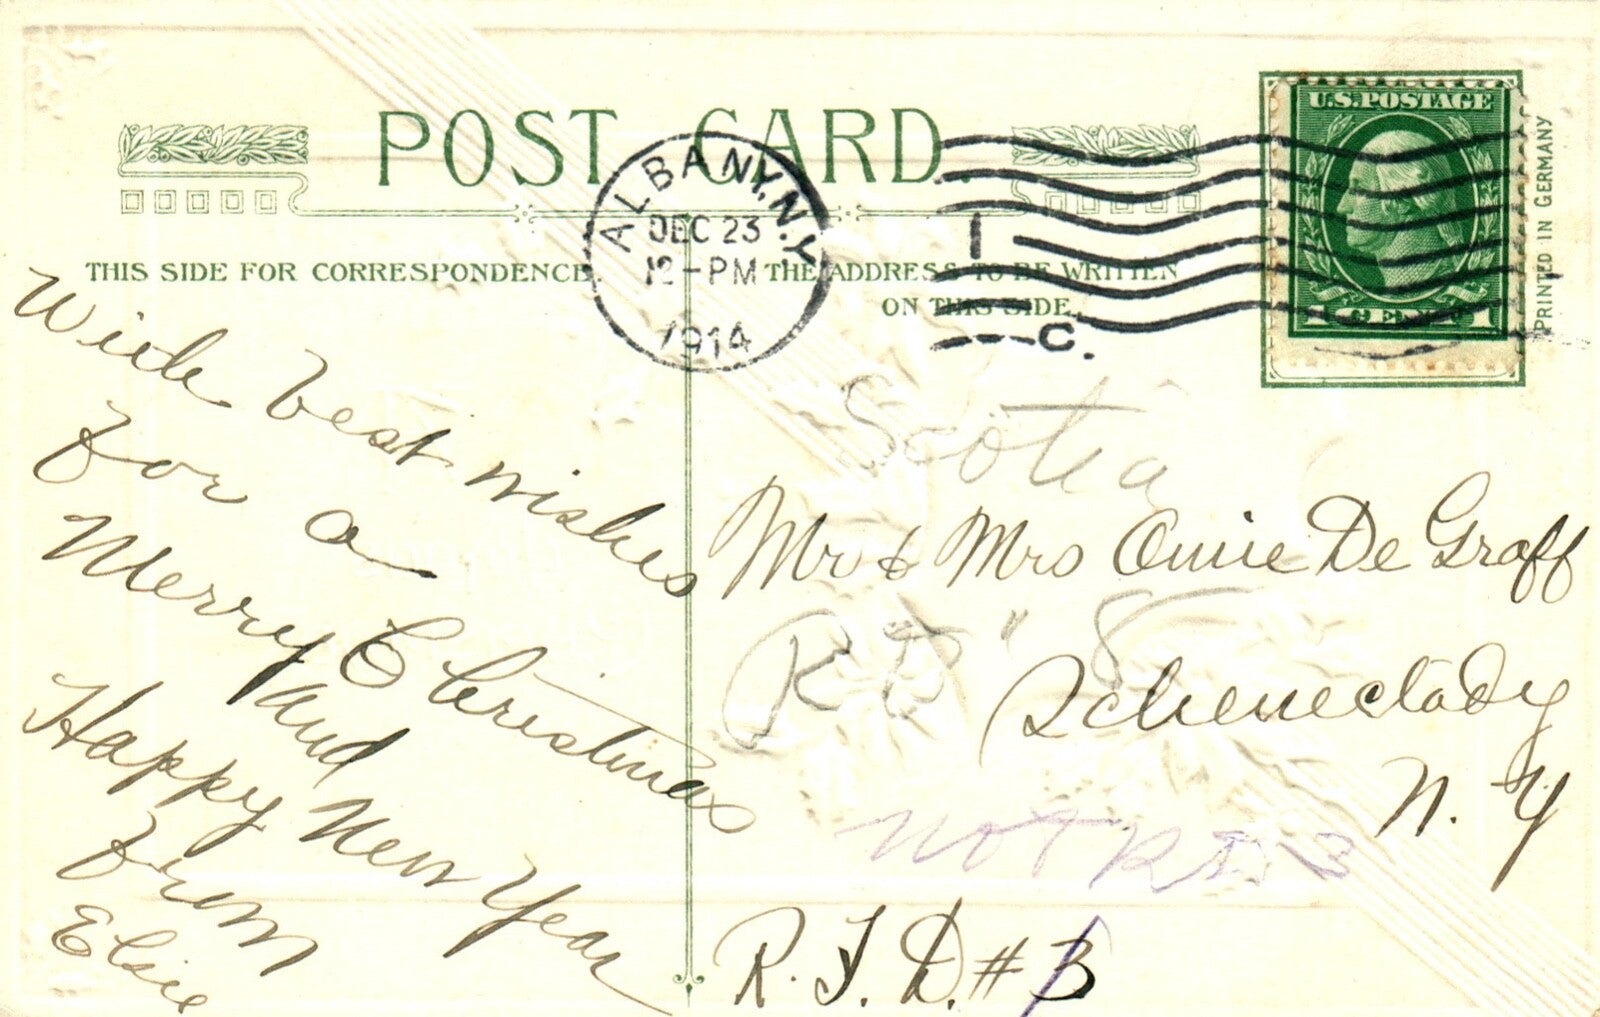 POST CARD.
U.S.POSTAGE
1 CENT 1
PRINTED IN GERMANY
ALBANY, N.Y.
DEC 23
12-PM
1914
1
C.
THIS SIDE FOR CORRESPONDENCE
THE ADDRESS TO BE WRITTEN
ON THIS SIDE.
With best wishes
for a
Merry Christmas
and
Happy New Year
from
Elsie
Scotia
Mr & Mrs Omie De Graff
R D " 8
Schenectady
N. Y
not RD 3
R. F. D. # 3